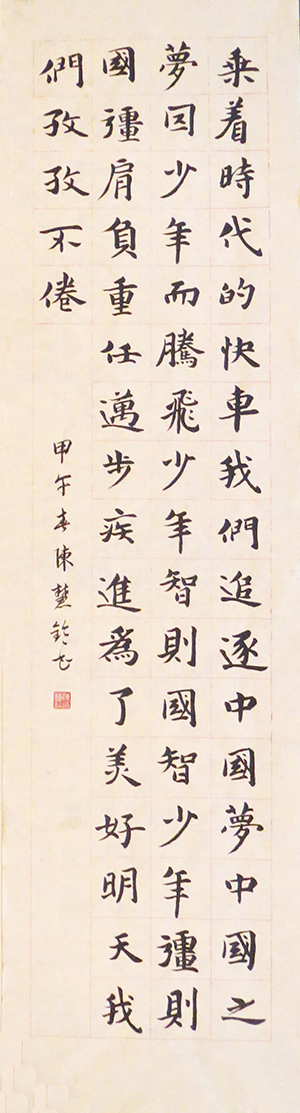 乘着時代的快車我們追逐中國夢中國之
夢因少年而騰飛少年智則國智少年彊則
國彊肩負重任邁步疾進為了美好明天我
們孜孜不倦
甲午春陳慧鈴書